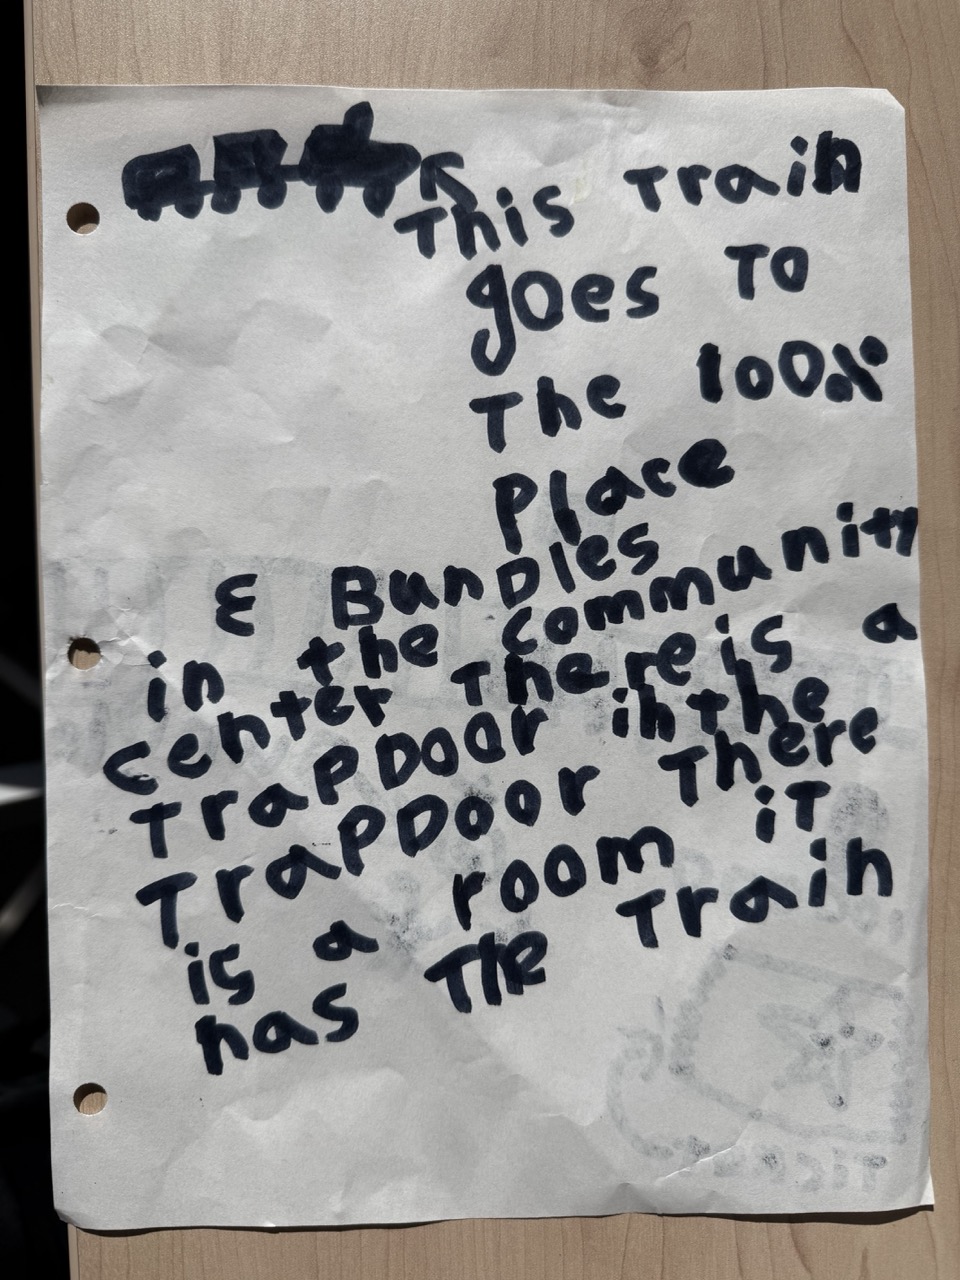 This Train
goes To
The 100%
Place
& Bundles
in the community
center There is a
TrapDoor in the
TrapDoor There
is a room iT
has The Train